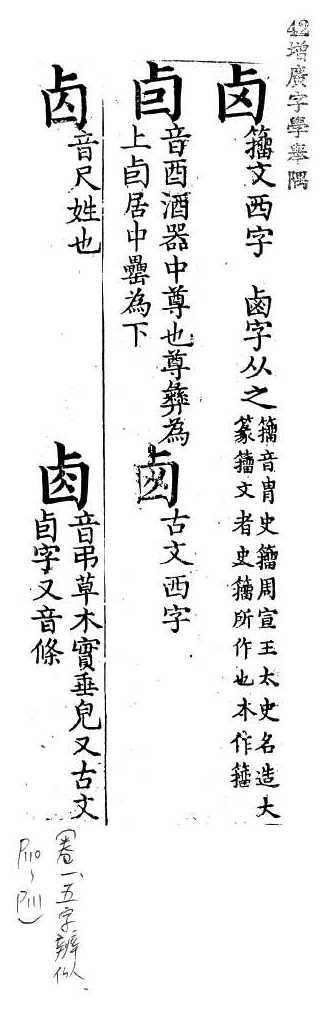 42增廣字學舉隅
卤
籀文西字 鹵字从之
籀音胄史籀周宣王太史名造大
篆籀文者史籀所作也本作籒
卣
音酉酒器中尊也尊彝為
上卣居中罍為下
卥
古文西字
音尺姓也
音弔草木實垂皃又古文
卣字又音條
(卷一、五字辨似、
P110~P111)